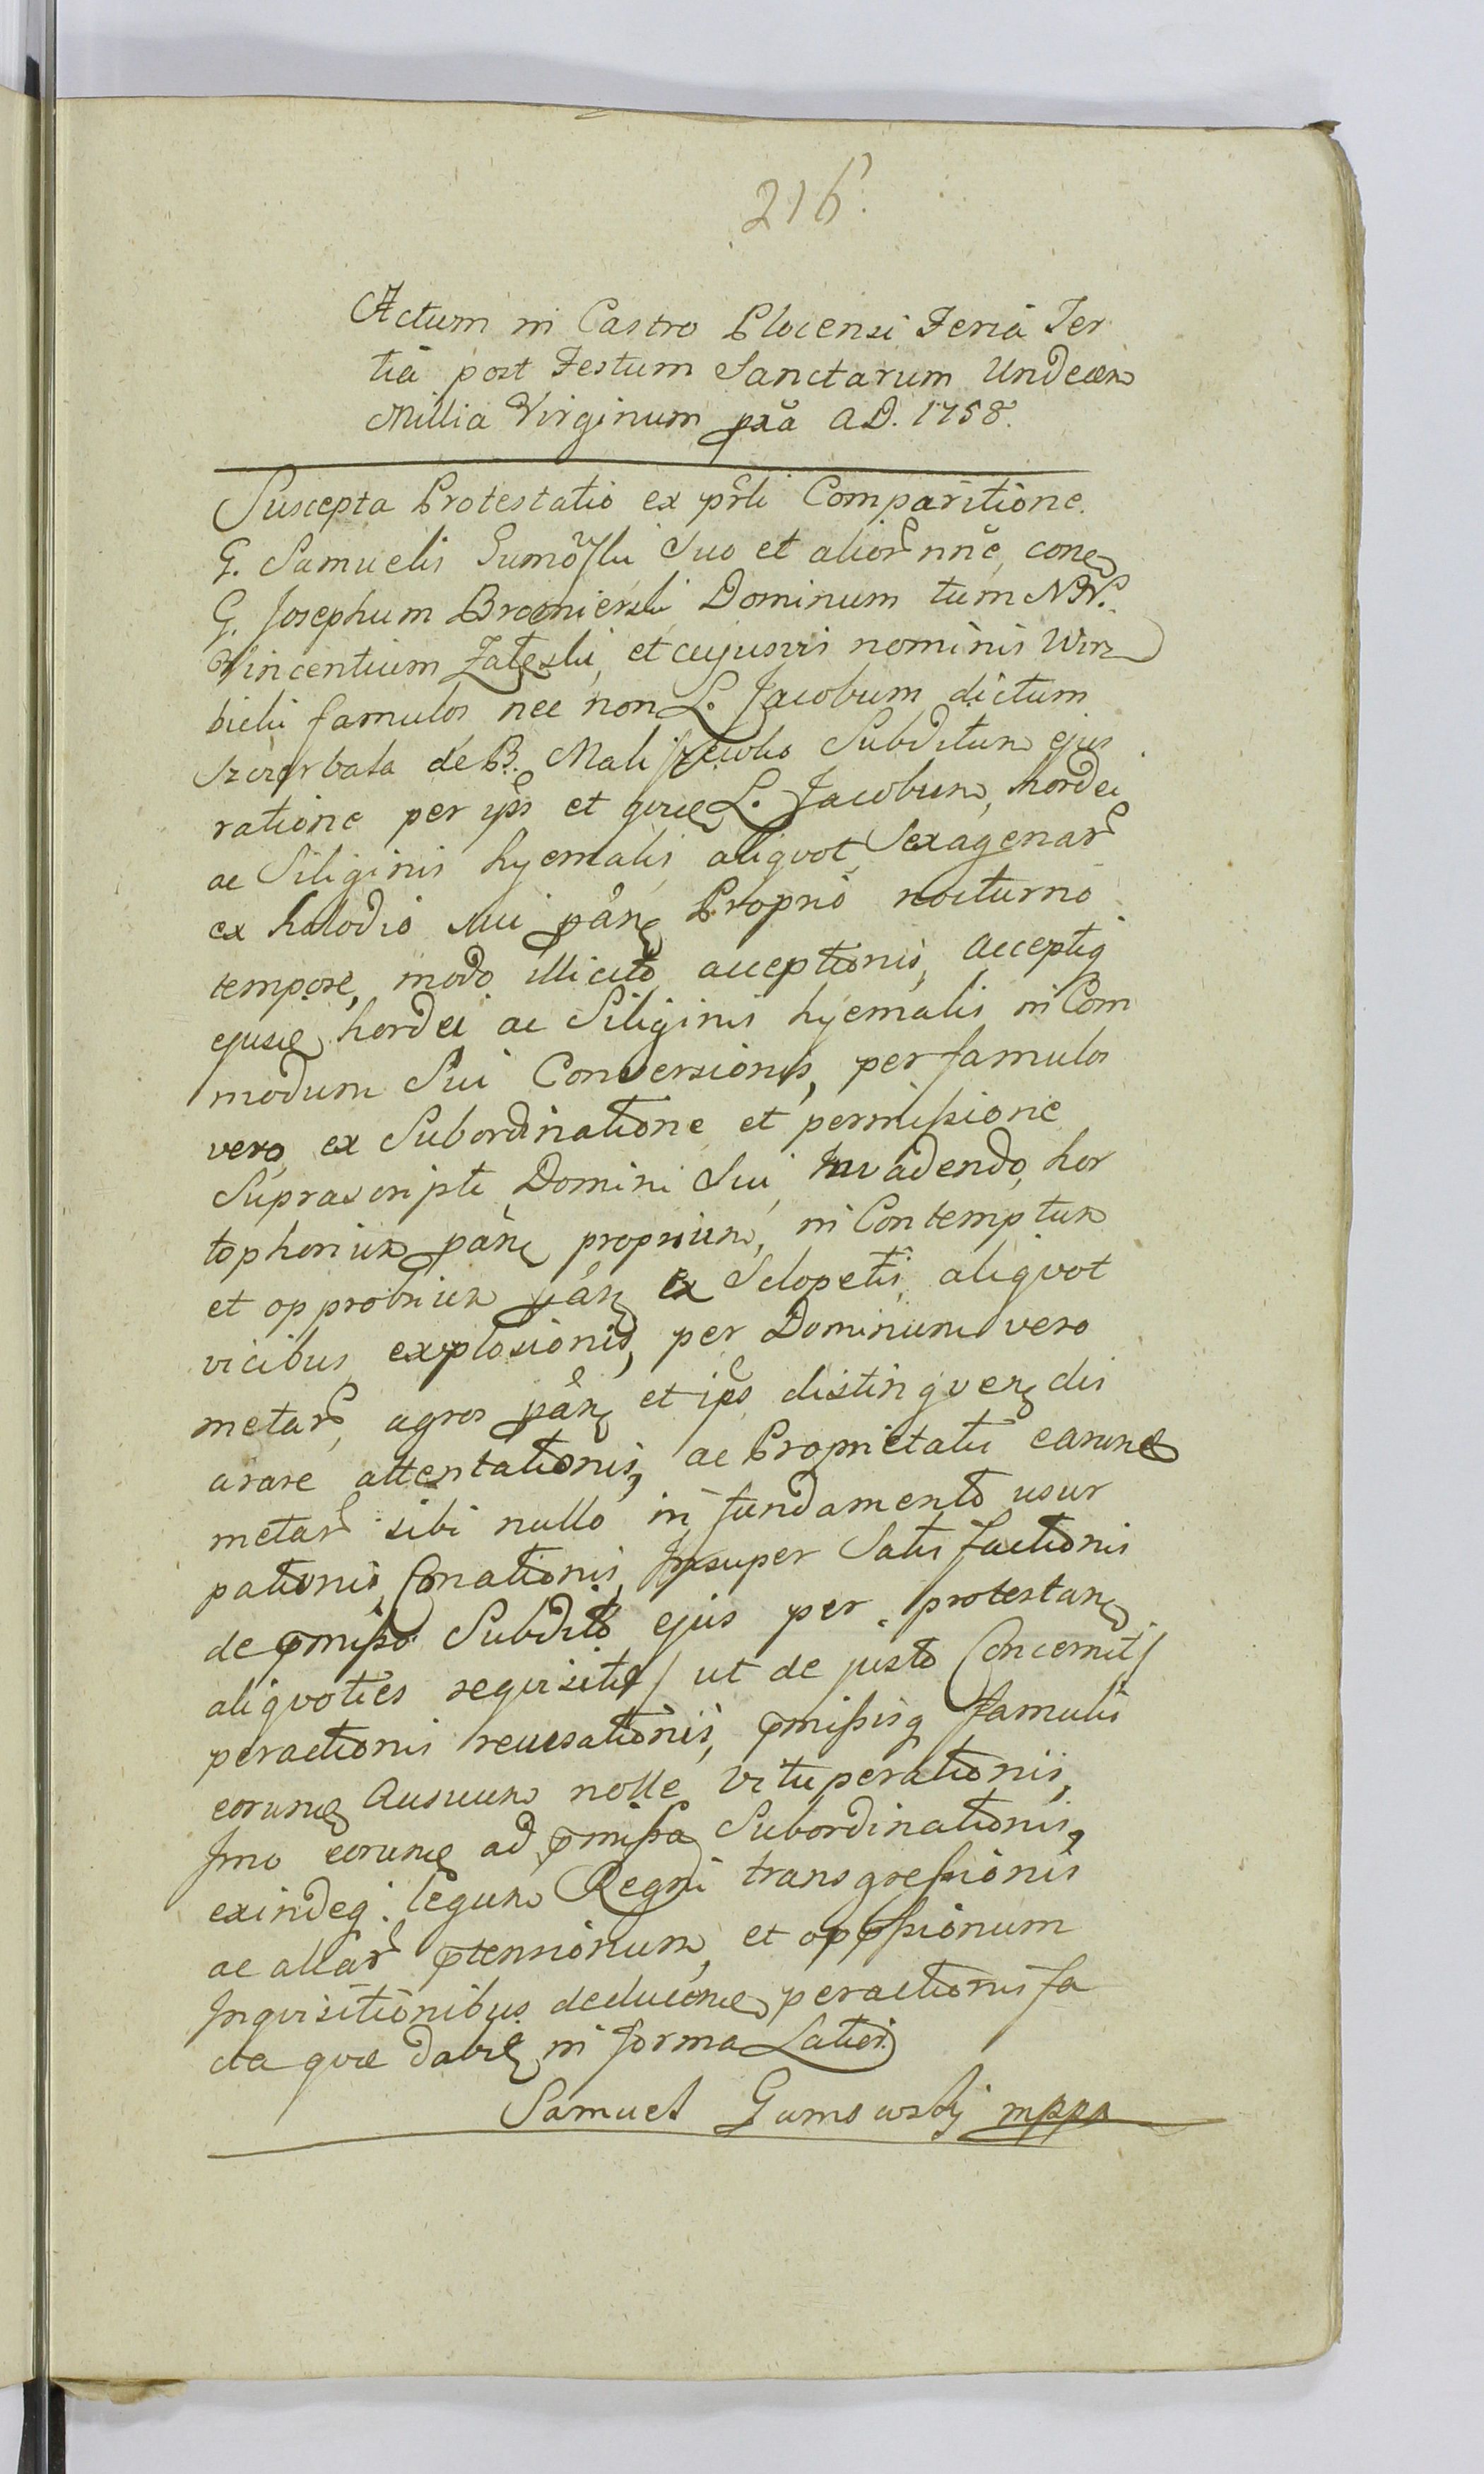 216.
Actum in Castro Plocensi Feriâ Ter
tiâ post Festum Sanctarum Undecem
Millia Virginum pxã A.D. 1758.
Suscepta Protestatio ex prli Comparitione.
G. Samuelis Gumoski Suo et alior nñe, cone
G. Josephum Bromierski Dominum tum NN.
Vincentium Załęski, et cujusvis nominis Wirz
bicki famulos nec non L. Jacobum dictum
Szczerbata de B. Mali subditum ejus
ratione per ips et L. Jacobum, hordei
ac Siliginis hyemalis aliqvot Sexagenar
ex halodio sui pãn Propriô nocturno
tempore, modo illicito acceptionis, acceptiq
ejusd hordei ac Siliginis hyemalis in Com
modum Sui Conversionis, per famulos
vero ex Subordinatione et permissione
Suprascripti Domini Sui, Invadendo, hor
tophorium pãn proprium, in Contemptum
et opprobrium pãn ex Sclopetis, aliqvot
vicibus explosionis, per Dominum vero
metar, agros pãn et ips distingven dis
arare attentationis, ac Proprietatis earund
metar sibi nullo in fundamento usur
pationis, Conationis, Insuper Satisfactionis
de pmisso Subdito ejus per protestan
aliqvoties reqvisiti / ut de justo Concernit /
peractionis recusationis, pmissisq famulis
eorund Ausuum nolle vituperationis,
Imo eorund ad pmissa Subordinationis,
exindeq legum Regni transgressionis
ac aliar ptensionum, et oppssionum
Inqvisitionibus deducend peractionis fa
cta qvæ dabit in forma Latiori
Samuel Gumowsky mppa